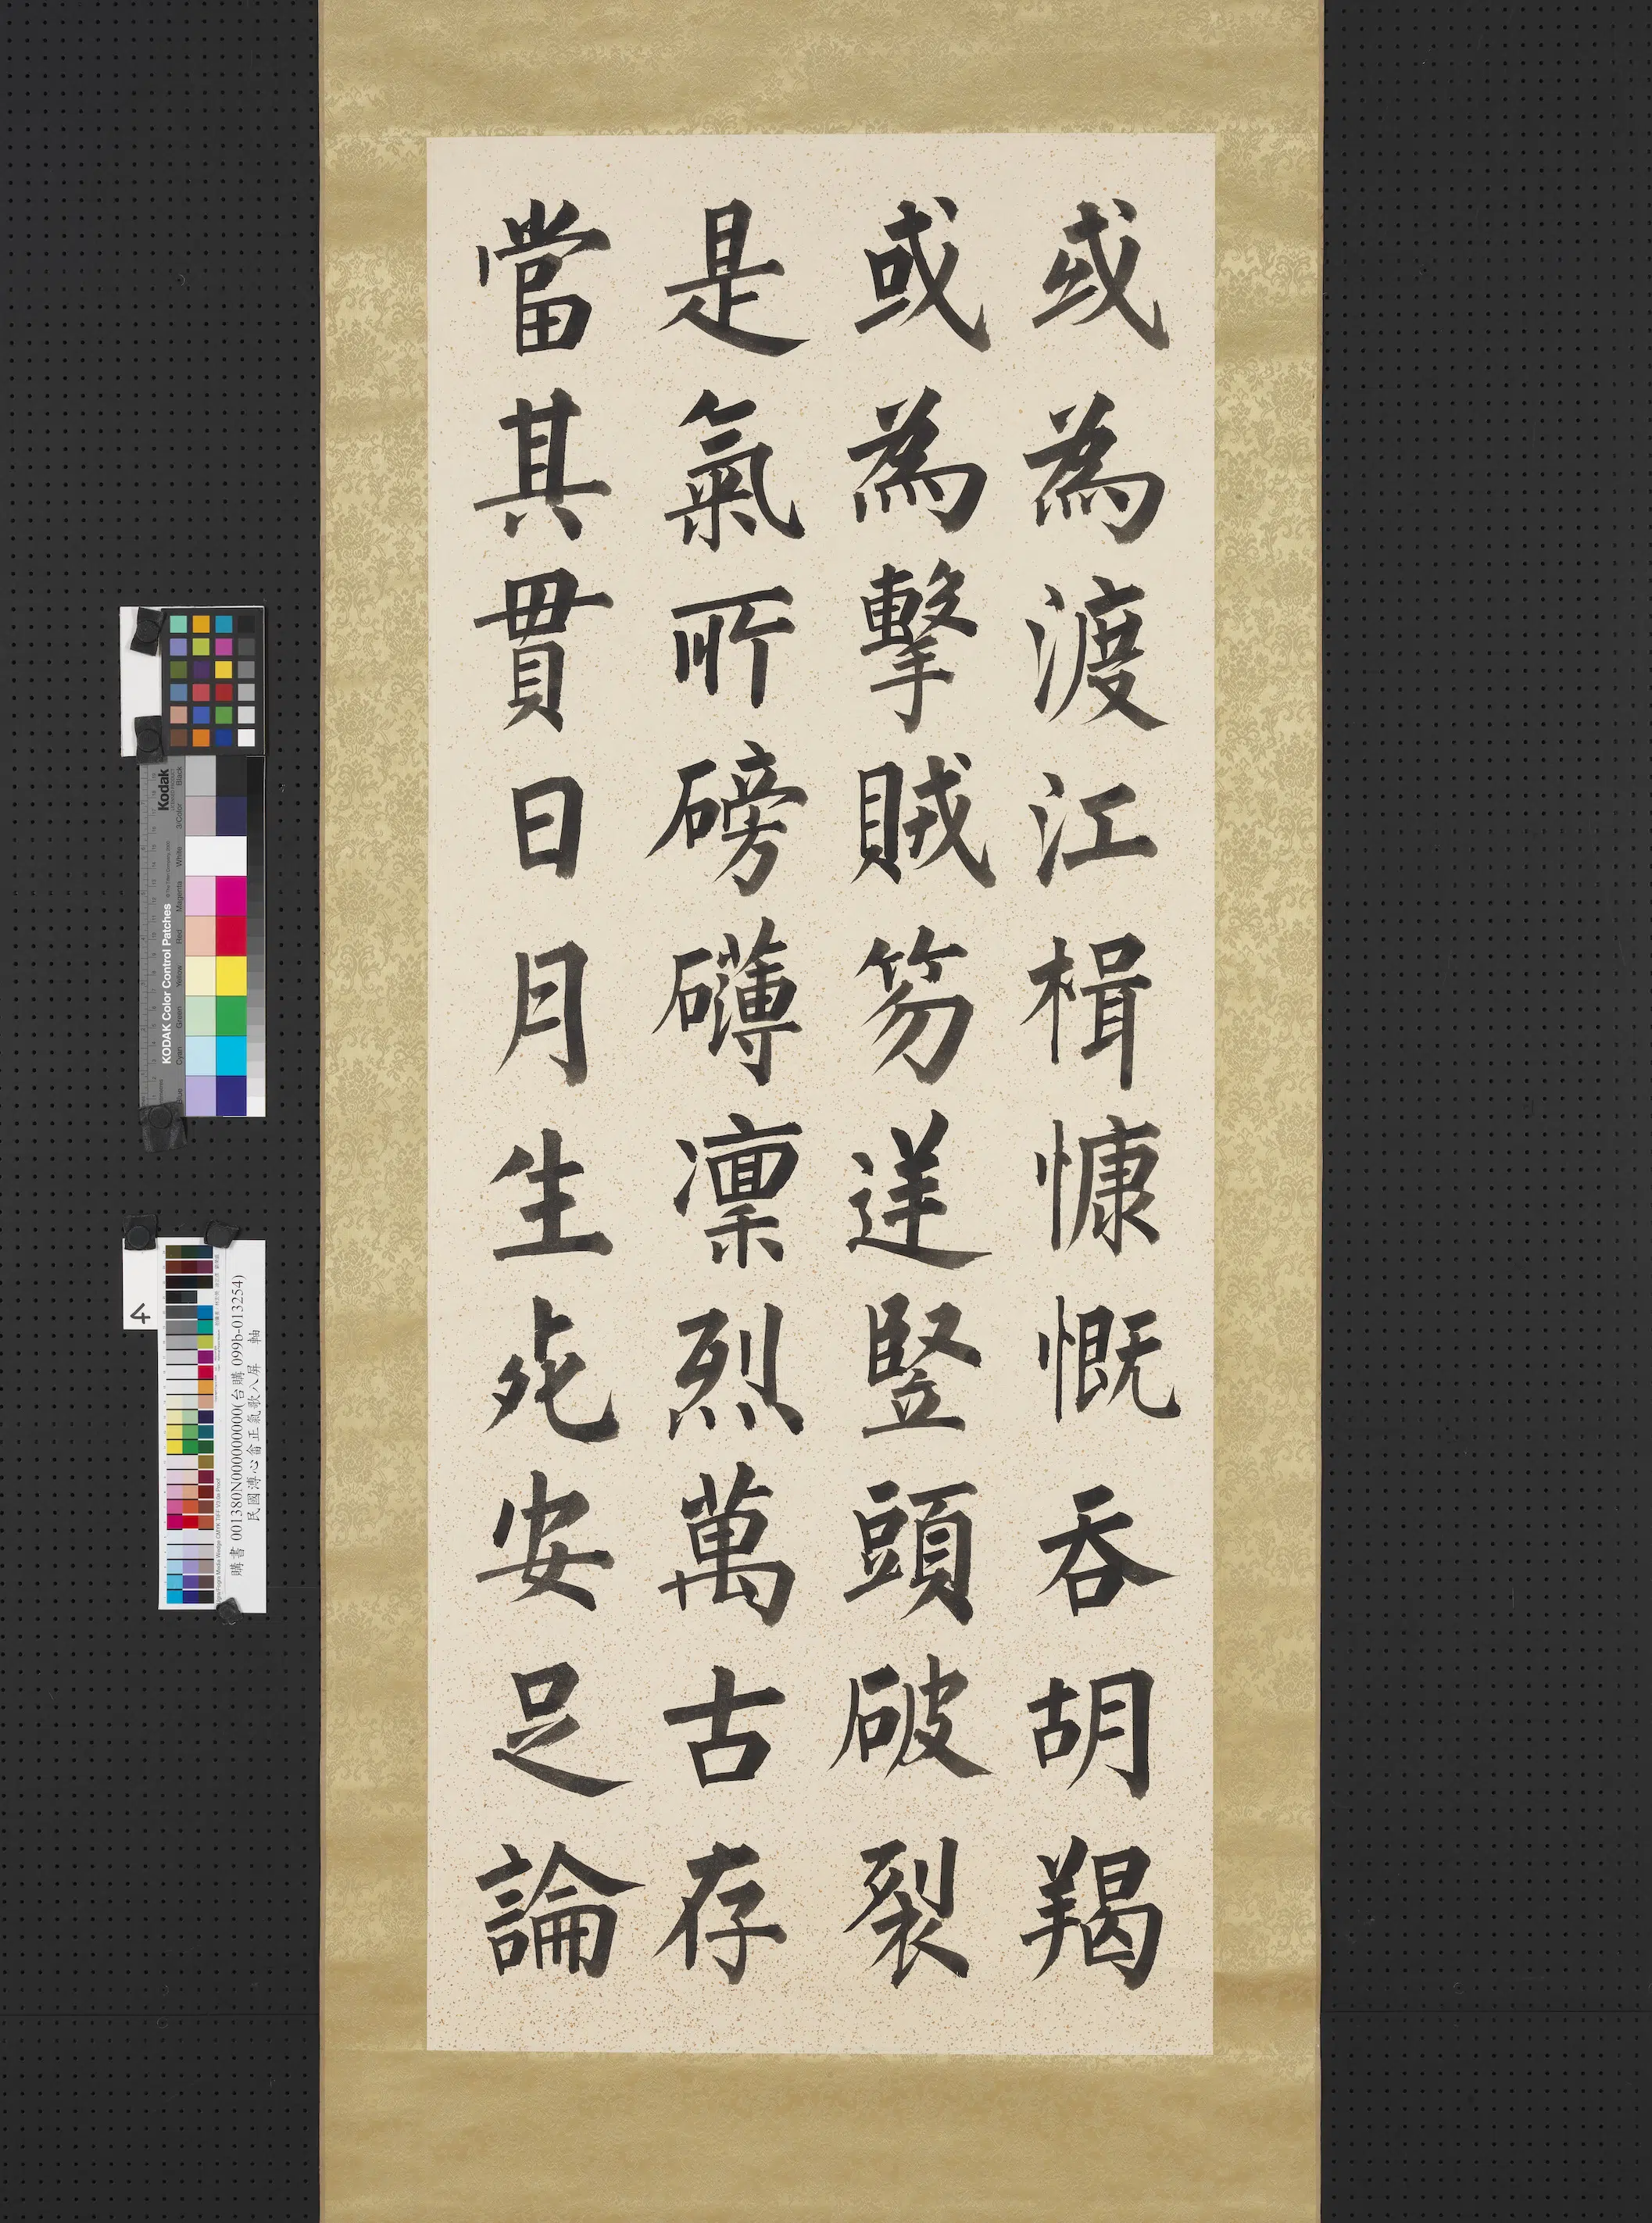 或為渡江楫慷慨吞胡羯
或為擊賊笏逆豎頭破裂
是氣所磅礴凜烈萬古存
當其貫日月生死安足論
Kodak
KODAK Color Control Patches
Black
3/Color
White
Magenta
Red
Yellow
Green
Cyan
Blue
4
購書 001380N000000000(台購 099b-013254)
民國溥心畬正氣歌八屏 軸